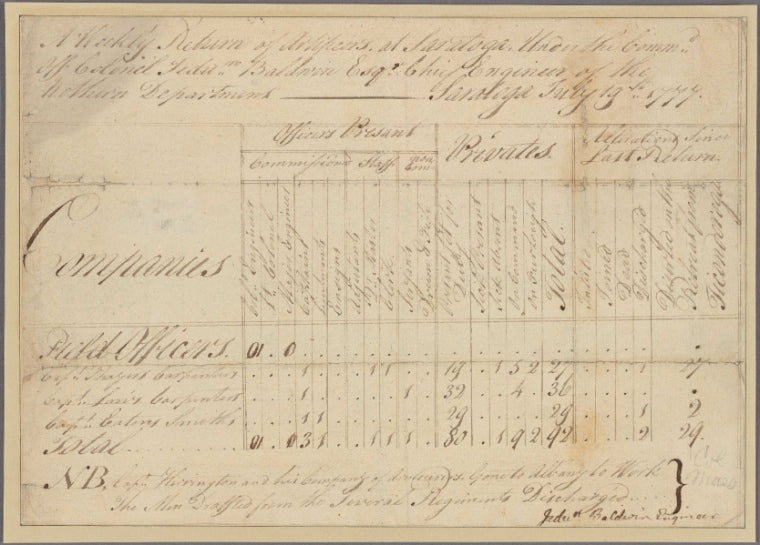 A Weekly Return of Artificers at Saratoga Under the Comm.d
Off Colonel Jedu.n Baldwin Esq.r Chief Engineer of the
Nothern Department ——— Saratoga July 19th 1777.
Officers Present
Privates
Alterations Since Last Return
Commissiond Staff non Com
Companies
Ch.f Engineer
Lt Colonel
Major Engineer
Captains
Ensigns
Adjutants
Qr Master
Clerk
Serjants
Drum & Fife
Present fit for Duty
Sick Present
Sick Absent
On Command
On Furlough
Total
Joined
Dead
Discharged
Wounded in the Retreat from Ticonderoga
Field Officers. 01 . 0 . . . . . . . . . . . . . . . . . . .
Capt. Carpenters . . . 1 . . . 1 1 . . 19 . 1 5 2 27 . . . 1 27
Capt. Carpenters . . . 1 . . . . . 1 . 32 . . 4 . 36 . . . . .
Capt. Eatons Smiths . . . 1 1 . . . . . . 29 . . . . 29 . . . 1 2
Total 01 . 0 3 1 . . 1 1 1 . 80 . 1 9 2 92 . . . 2 29.
NB. Capt. Herrington and his Company of Gone to Albany to Work
The Men Draffted from the Several Regiments Discharged
Jedun Baldwin Engineer